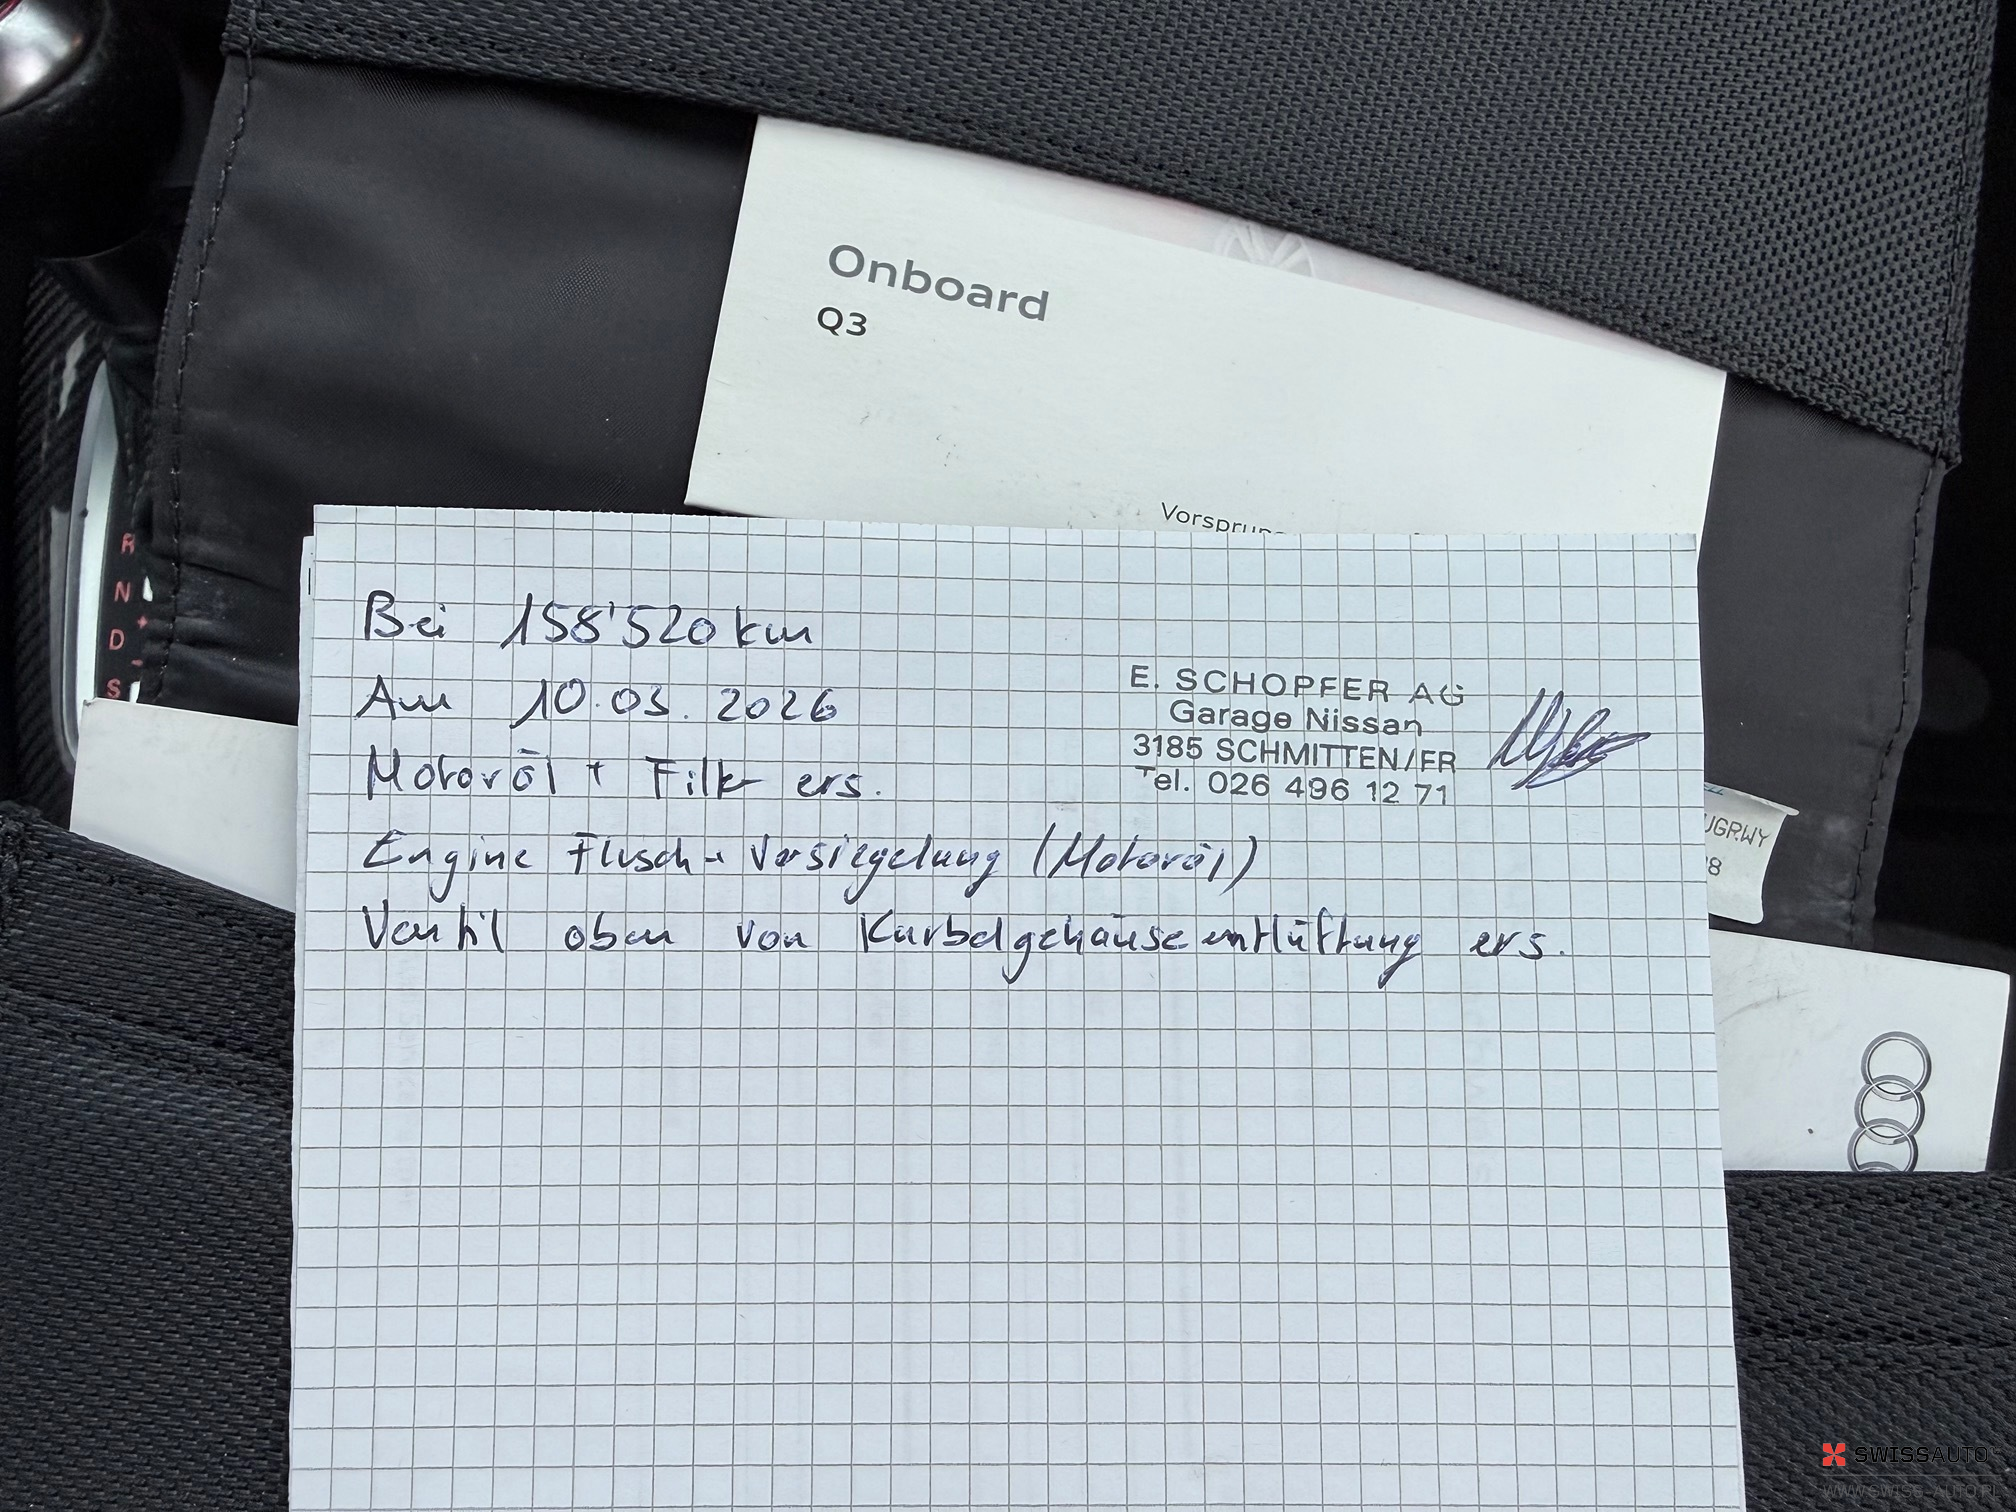 Onboard
Q3
Vorsprung
R
N
D
S
+
-
Bei 158'520 km
Am 10.03.2026
Motoröl + Filter ers.
Engine Flusch + Versiegelung (Motoröl)
Ventil oben von Kurbelgehäuseentlüftung ers.
E. SCHOPFER AG
Garage Nissan
3185 SCHMITTEN/FR
Tel. 026 496 12 71
UGRWY
8
SWISSAUTO
WWW.SWISS-AUTO.PL